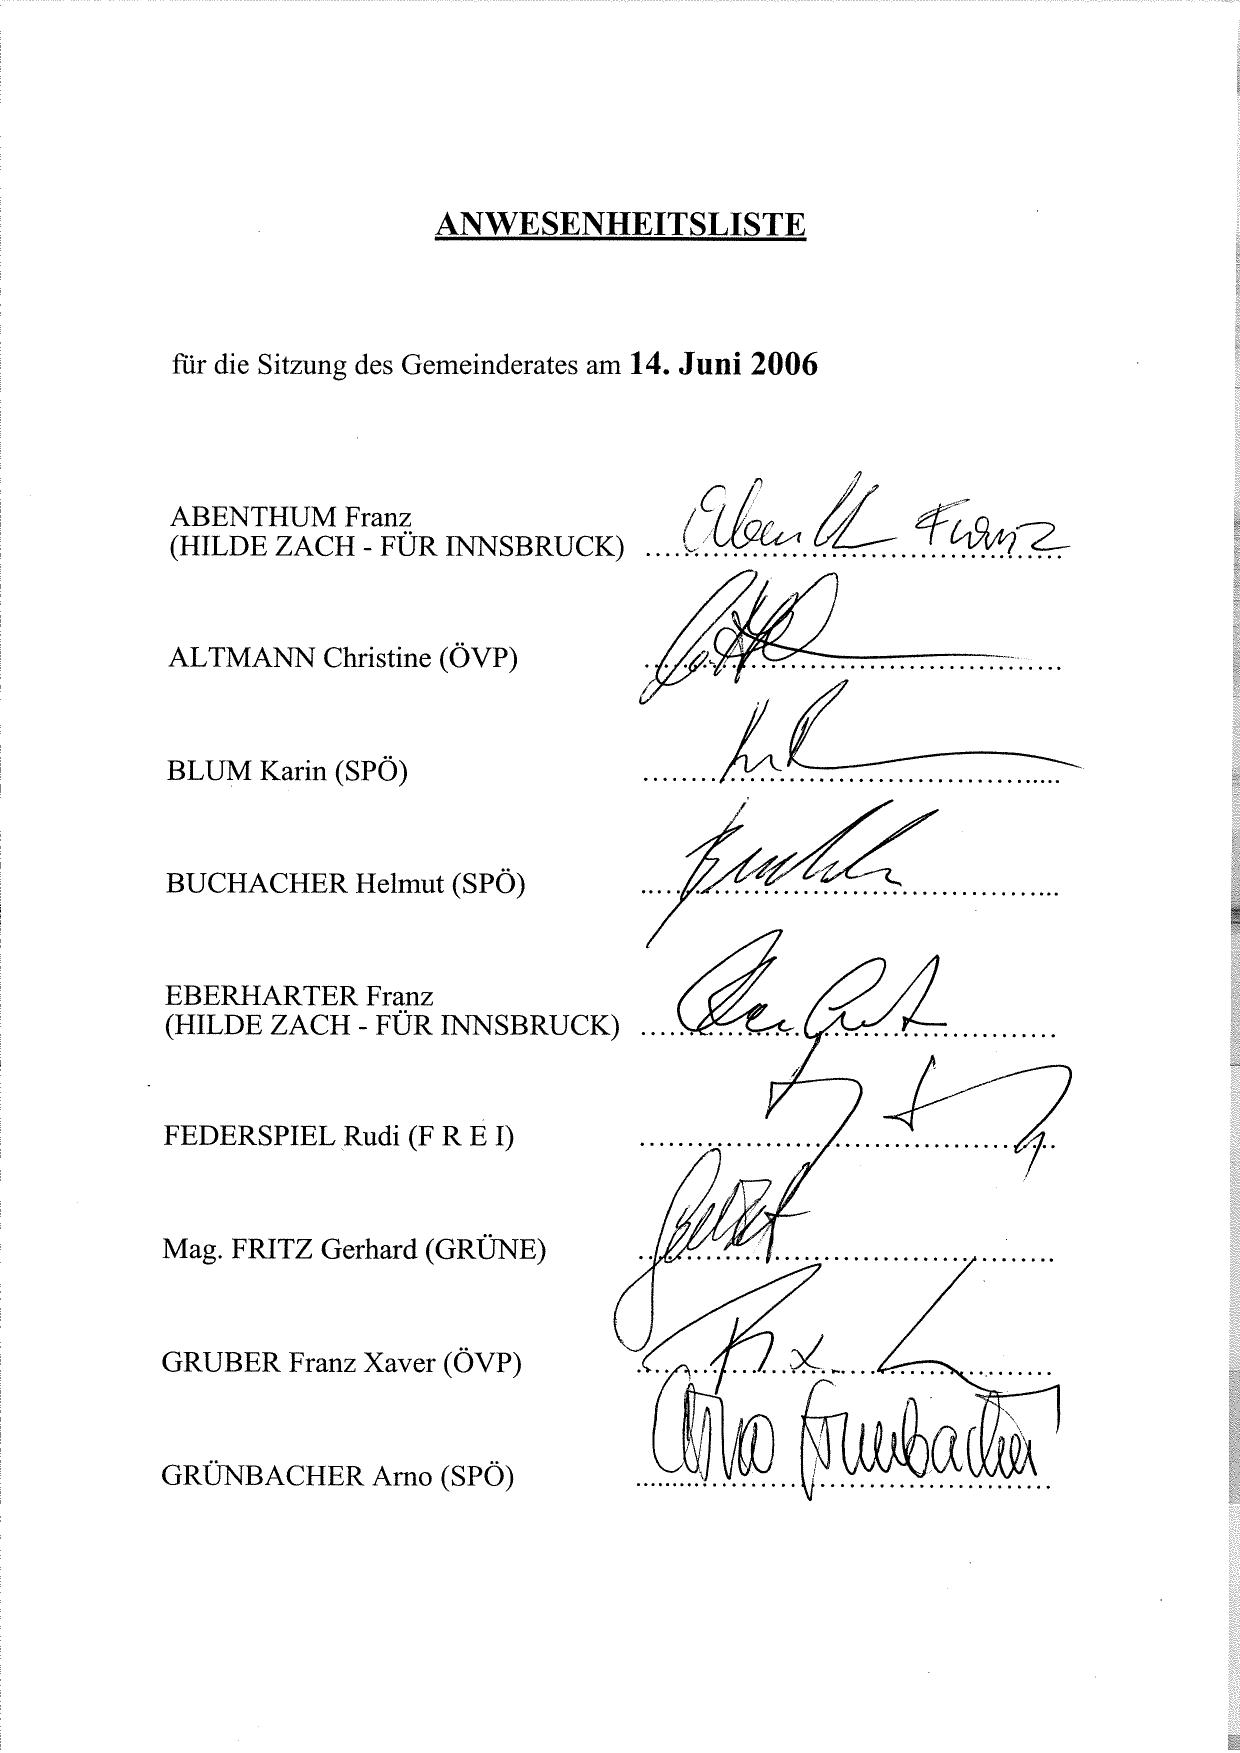 ANWESENHEITSLISTE
für die Sitzung des Gemeinderates am 14. Juni 2006
ABENTHUM Franz
(HILDE ZACH - FÜR INNSBRUCK) ....................................................... Franz
ALTMANN Christine (ÖVP) .......................................................
BLUM Karin (SPÖ) .......................................................
BUCHACHER Helmut (SPÖ) .......................................................
EBERHARTER Franz
(HILDE ZACH - FÜR INNSBRUCK) .......................................................
FEDERSPIEL Rudi (F R E I) .......................................................
Mag. FRITZ Gerhard (GRÜNE) .......................................................
GRUBER Franz Xaver (ÖVP) .......................................................
GRÜNBACHER Arno (SPÖ) ....................................................... Arno Grünbacher